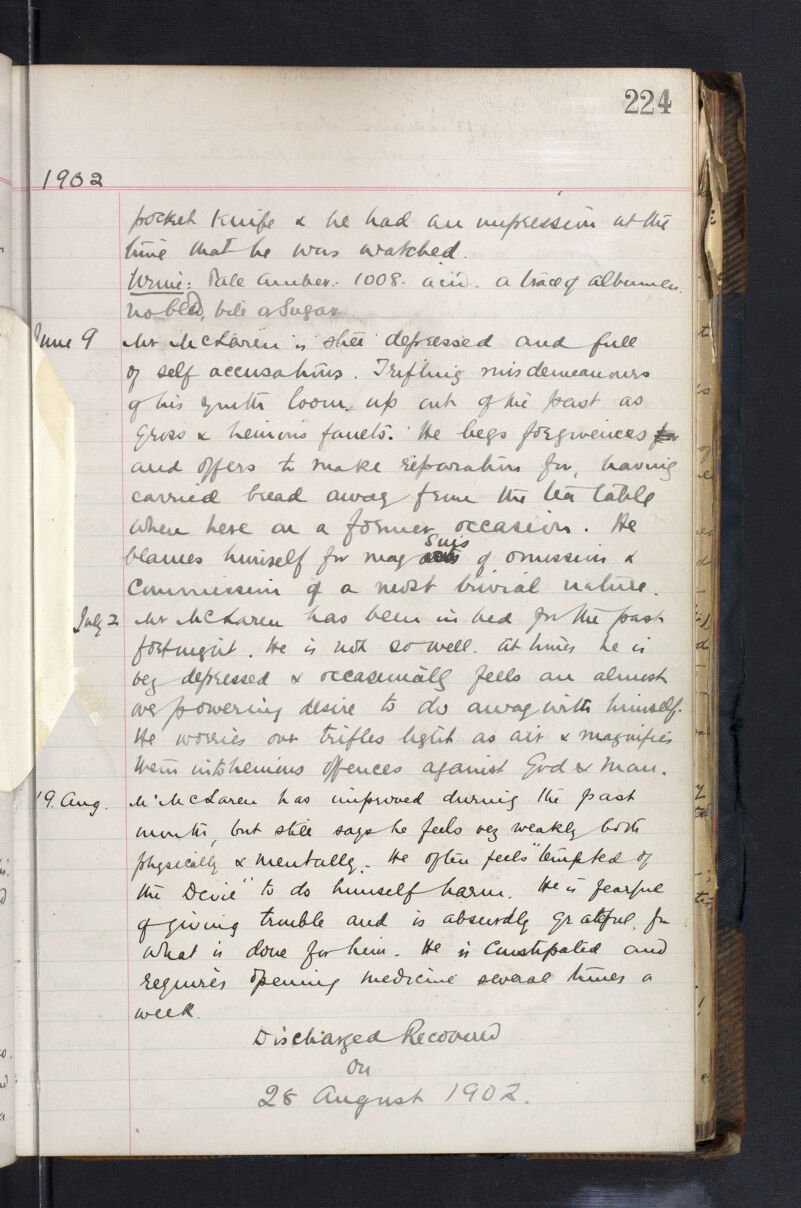 224
1902
pocket knife & he had an impression at the
time that he was watched.
Urine: Pale amber. 1008. acid. a trace of albumen.
no blood, bile or Sugar.
June 9 Mr McLaren is still depressed and full
of self accusations. Trifling misdemeanours
of his youth loom up out of the past as
gross & heinous faults. He begs forgiveness for
and offers to make reparation for, having
carried bread away from the tea table
when here on a former occasion. He
blames himself for many sins of omission &
Commission of a most trivial nature.
July 2 Mr McLaren has been in bed for the past
fortnight. He is not so well. At times he is
very depressed & occasionally feels an almost
overpowering desire to do away with himself.
He worries over trifles light as air & magnifies
them into heinous offences against God & Man.
19. Aug. Mr McLaren has improved during the past
month, but still says he feels very weakly both
physically & mentally. He often feels "tempted of
the Devil" to do himself harm. He is fearful
of giving trouble and is absurdly grateful for
what is done for him. He is Constipated and
requires opening medicine several times a
week.
Discharged Recovered
on
28 August 1902.